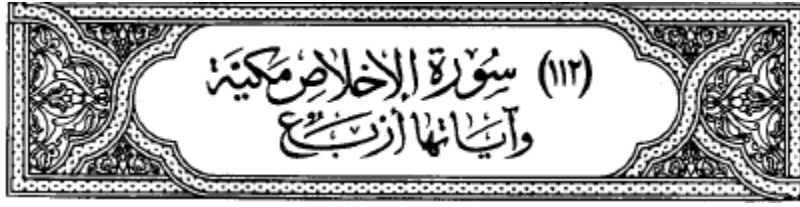 (١١٢) سُورَة الإخلاص مكيَة
وآيَاتها أربَع